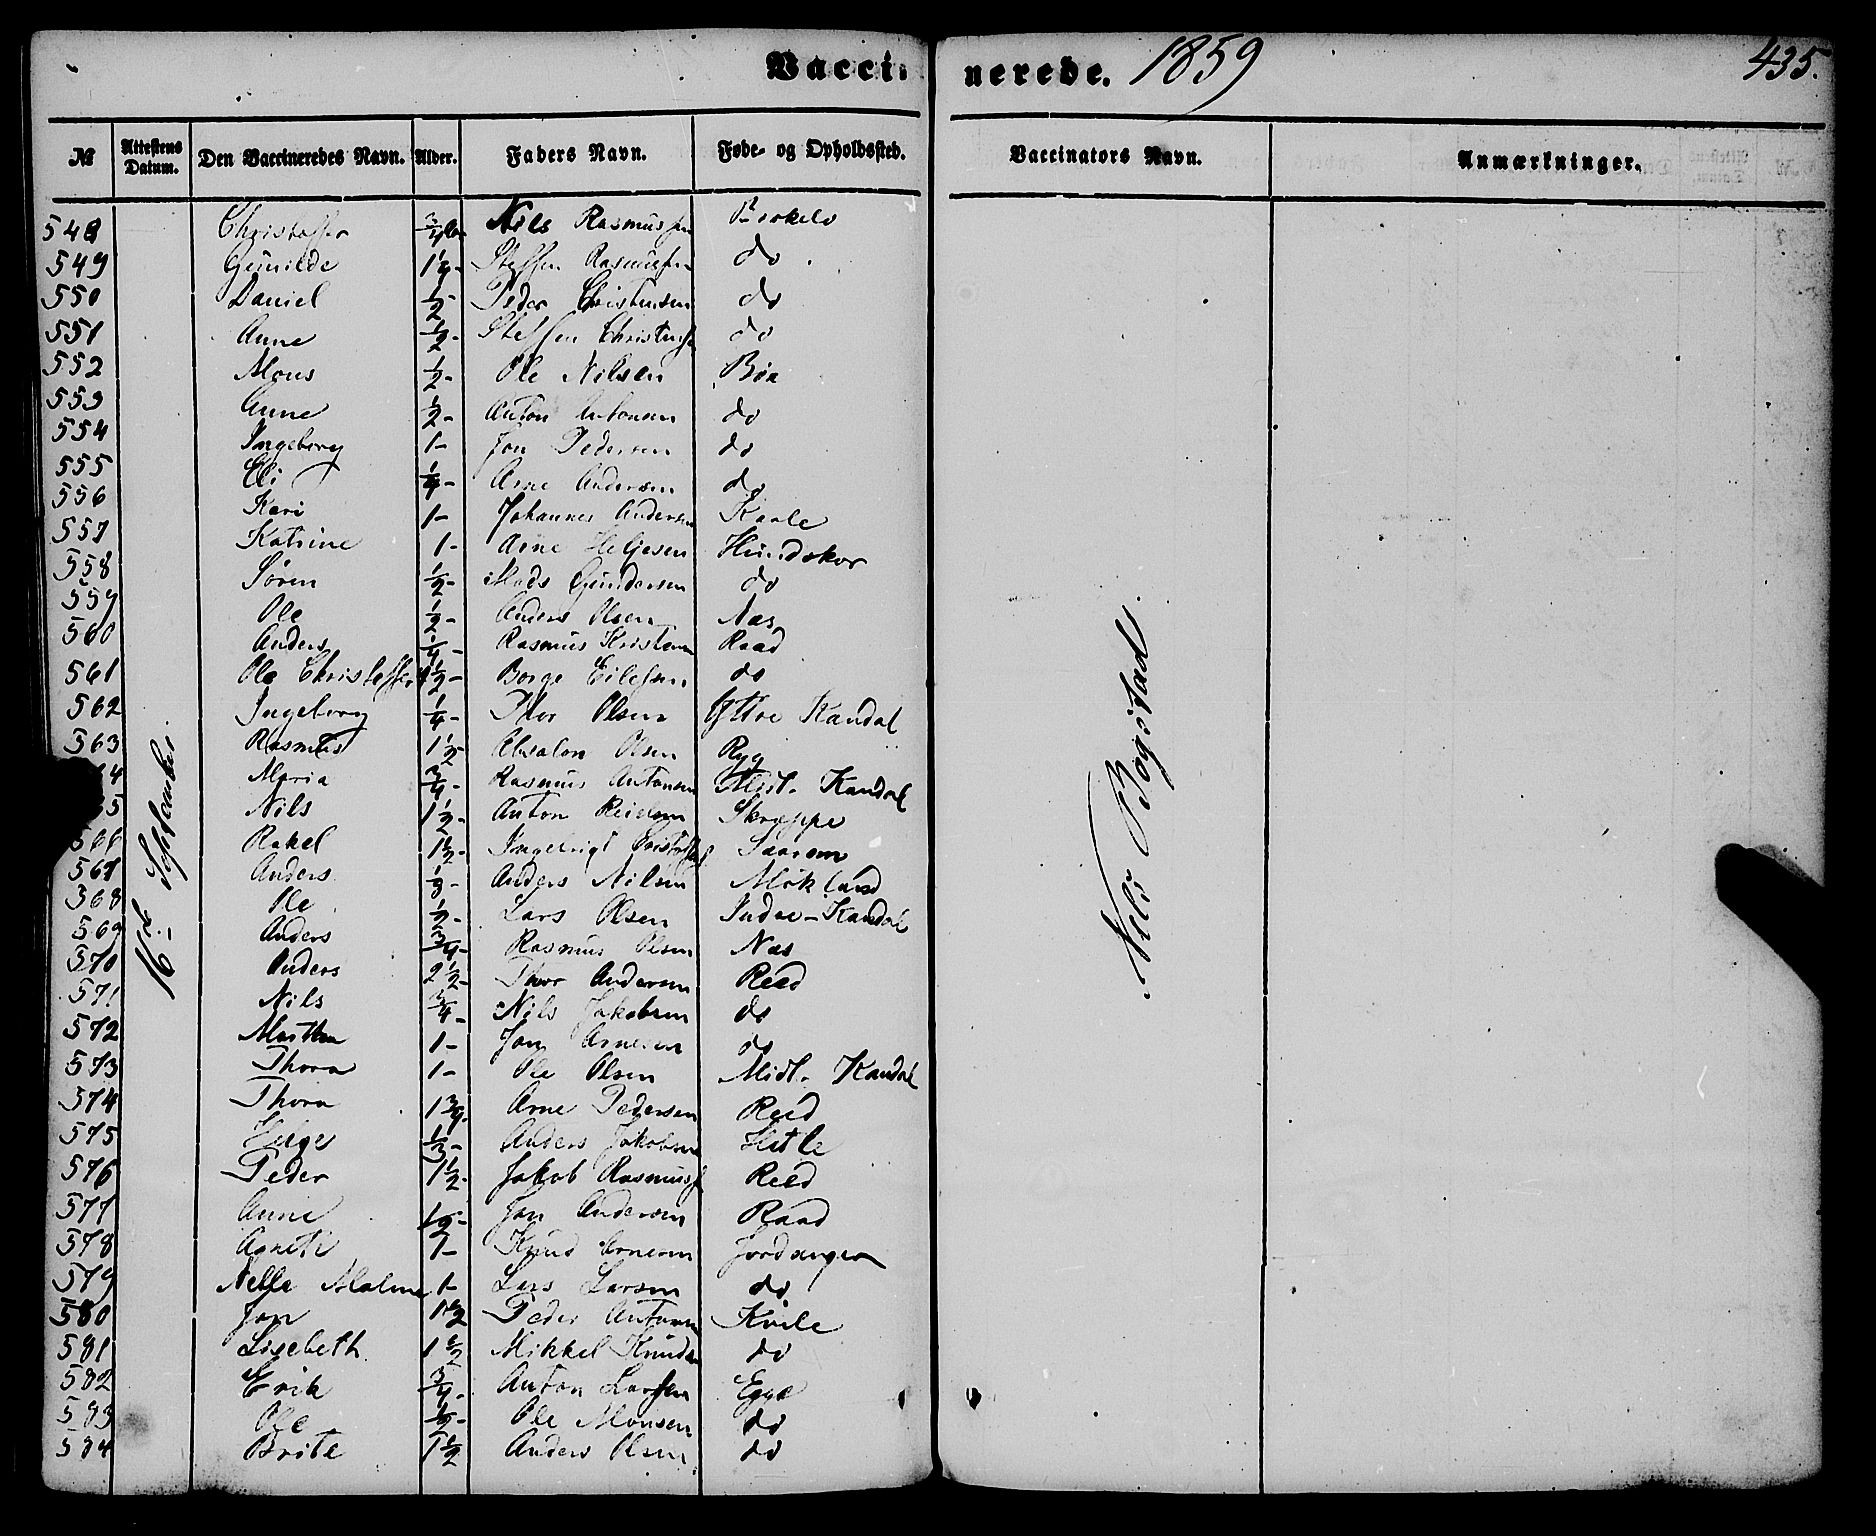 Vaccinerede. 1859 435.
№ Attestens Datum. Den Vaccineredes Navn. Alder. Faders Navn. Føde- og Opholdssted. Vaccinators Navn. Anmærkninger.
16de September
Nils Bogstad.
548 Christoffer 3/4 Nils Rasmussen
549 Gunilde Steffen Rasmussen do
550 Daniel 1/2- Peder Christensen do
551 Anne 1/2- Steffen Christensen do
552 Mons 1/2- Ole Nilsen Bøe
553 Anne 1/2- Anton Antonsen do
554 Ingeborg 1- Jon Pedersen do
555 Eli 1/4- Arne Andersen do
556 Kari 1- Johannes Andersen
557 Katrine 1- Arne Heljesen Hundskor
558 Søren 1/2- Mads Gundersen do
559 Ole 1/2- Anders Olsen Næs
560 Anders 1/4- Rasmus Kristensen Raad
561 Ole Christoffer 1/2- Borge Eilefsen do
562 Ingeborg 1/4- Thor Olsen Yttre Kandal
563 Rasmus 1 1/2 Absalon Olsen Ryg
Maria 3/4- Rasmus Antonsen Midt- Kandal
Nils 1 1/2- Anton Skreppe
566 Rakel 1 1/2- Ingebrigt
567 Anders Anders Nilsen
568 Ole 1/2- Lars Olsen Indre-Kandal
569 Anders 3/4- Rasmus Olsen Næs
570 Anders 2 1/2- Thor Andersen Reed
571 Nils 3/4- Nils Jakobsen do
572 Marthe 1- Jon Arnesen do
573 Thora 1- Ole Olsen Midt- Kandal
574 Thora 1 3/4- Arne Pedersen Reed
575 Helge Anders Jakobsen
576 Peder 1 1/2- Jakob Rasmussen Reed
577 Anne 1/2- Jon Andersen Raad
578 Agnete 1- Knud Arnesen Jordanger
579 Nelle Malene 1- Lars Larsen do
580 Jon 1 1/2 Peder Antonsen Kvile
581 Lisebeth 1 1/2 Mikkel Knudsen do
582 Erik 3/4- Anton Larsen Egge
583 Ole 1/2- Ole Monsen do
584 Brite 1 1/2 Anders Olsen do